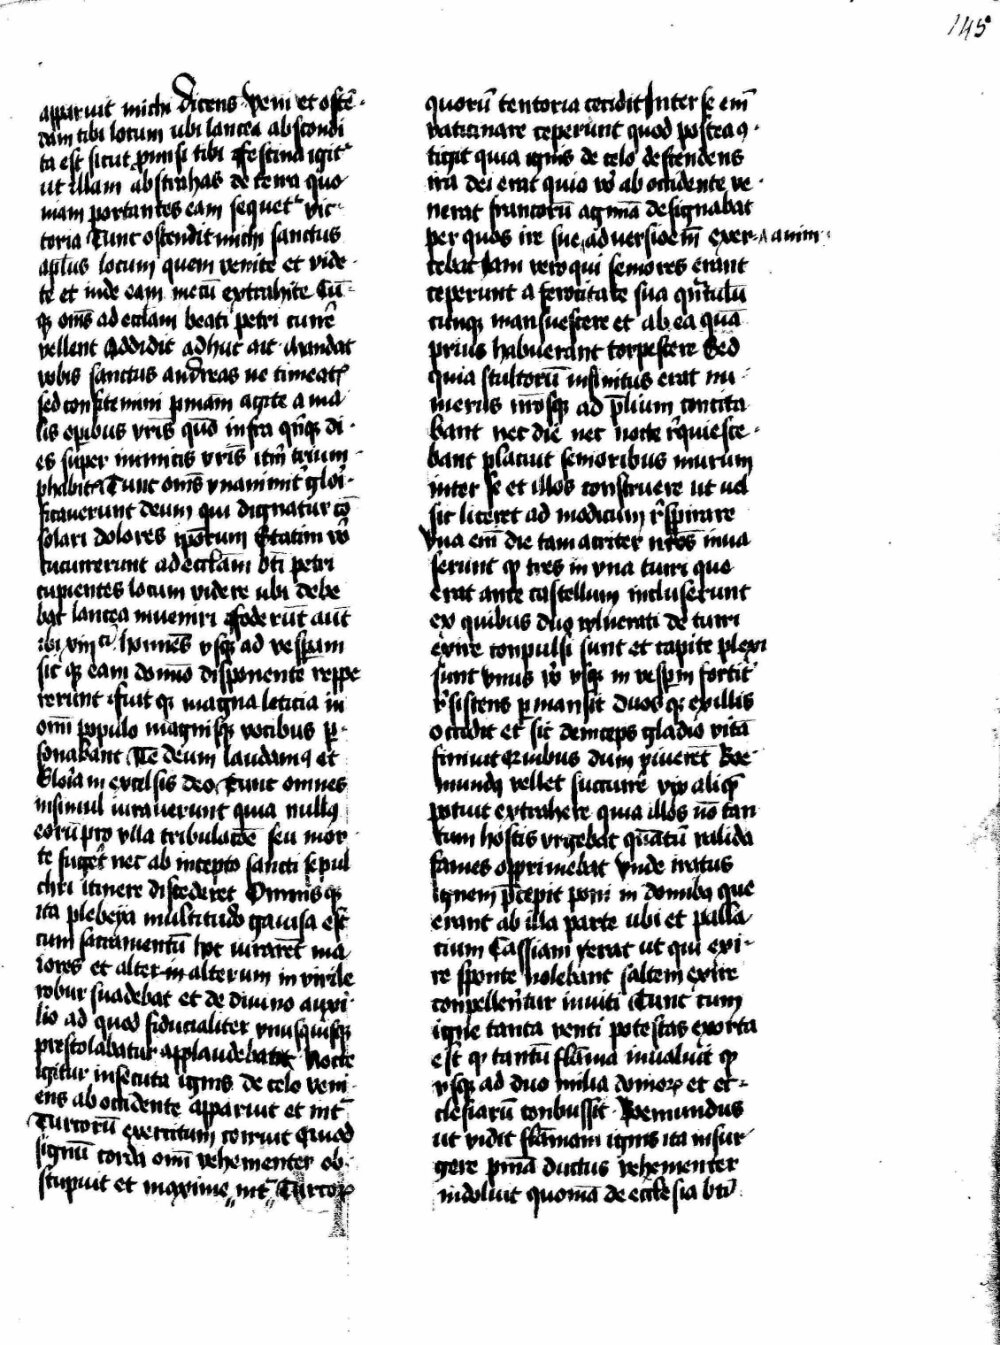 145
apparuit michi dicens veni et ostē-
dam tibi locum ubi lancea abscondi
ta est sicut pmisi tibi ffestina igit᷑
ut illam abstrahas de terra quo
niam portantes eam sequet᷑ vic-
toria Tunc ostendit michi sanctus
apl̄us locum quem venite et vide-
te et inde eam mecū extrahite Cū-
qꝫ oms̄ ad eccl̄am beati petri currē
vellent Addidit adhuc ait Mandat
vobis sanctus andreas ne timeatꝭ
sed confitemini pniam agite a ma
lis opibus vrīs qd̄ infra qn̄qꝫ di-
es super inimicis vrīs itm̄ trium-
phabitꝭ Tunc oms̄ vnanimit᷑ glori-
ficaverunt deum qui dignatur cō
solari dolores ipōrum Statim vō
cucurrerunt ad eccl̄am bti petri
cupientes locum videre ubi debe
bat lancea inveniri ffoderūt aūt
ibi xiijci homines vsqꝫ ad vespam
sicqꝫ eam domno disponente reppe
rerunt ffuitqꝫ magna leticia in
omī populo magnisqꝫ vocibus p-
sonabant Te deum laudamꝰ et
Gloria in excelsis deo Tunc omnes
insimul iuraverunt quia nullꝰ
eorū pro vlla tribulacōe seu mor-
te fugeret nec ab incepto sancti sepul
chri itinere discederet Omnisqꝫ
ita plebeya multitudo gavisa est
cum sacramentū hoc iurarēt ma
iores et alter in alterum in virile
robur suadebat et de divino auxi-
lio ad quod fiducialiter vnusquisqꝫ
prestolabatur applaudebat Nocte
igitur insecuta ignis de celo veni-
ens ab occidente apparuit et int᷑
Turcorū exercitum corruit Quod
signū corda omī vehementer ob-
stupuit et maxime int᷑ Turcoꝝ
quorū tentoria cecidit Inter se em̄
vaticinare ceperunt quod postea ꝯ-
tigit quia ignis de celo descendens
ira dei erat quia vō ab occidente ve-
nerat francorū agmīa designabat
per quos ire sue adversioēm exer- anim
cebat Iam vero qui seniores erant
ceperunt a ferocitate sua qn̄tulū
cunqꝫ mansuescere et ab ea quā
prius habuerant torpescere Sed
quia stultorū infinitus erat nu-
merus nrōsqꝫ ad plium concita
bant nec die nec nocte rꝗuiesce-
bant placuit senioribus murum
inter se et illos construere ut vel
sic liceret ad modicum respirare
Vna em̄ die tam acriter nrōs inva
serunt qꝫ tres in vna turri que
erat ante castellum incluserunt
ex quibus duo vulnerati de turri
exire conpulsi sunt et capite plexi
sunt vnus vō vsqꝫ in vespm fortit᷑
resistens pmansit duosqꝫ ex illis
occidit et sic deinceps gladio vitā
finivit Quibus dum piverēt Boe-
mundꝰ vellet succurrē vix aliqꝫ
potuit extrahere quia illos nō tan
tum hostis vrgebat quātū valida
fames opprimebat Vnde iratus
ignem pcepit poni in domibꝰ que
erant ab illa parte ubi et palla
cium Cassiani yerat ut qui exi-
re sponte nolebant saltem exire
conpellentur inviti Tunc cum
igne tanta venti potestas exorta
est qꝫ tantū flāma invaluit qꝫ
vsqꝫ ad duo milia domoꝝ et ec-
clesiarū conbussit Boemundus
ut vidit flāmam ignis ita insur-
gere pniā ductus vehementer
indoluit quoniā de ecclesia bti